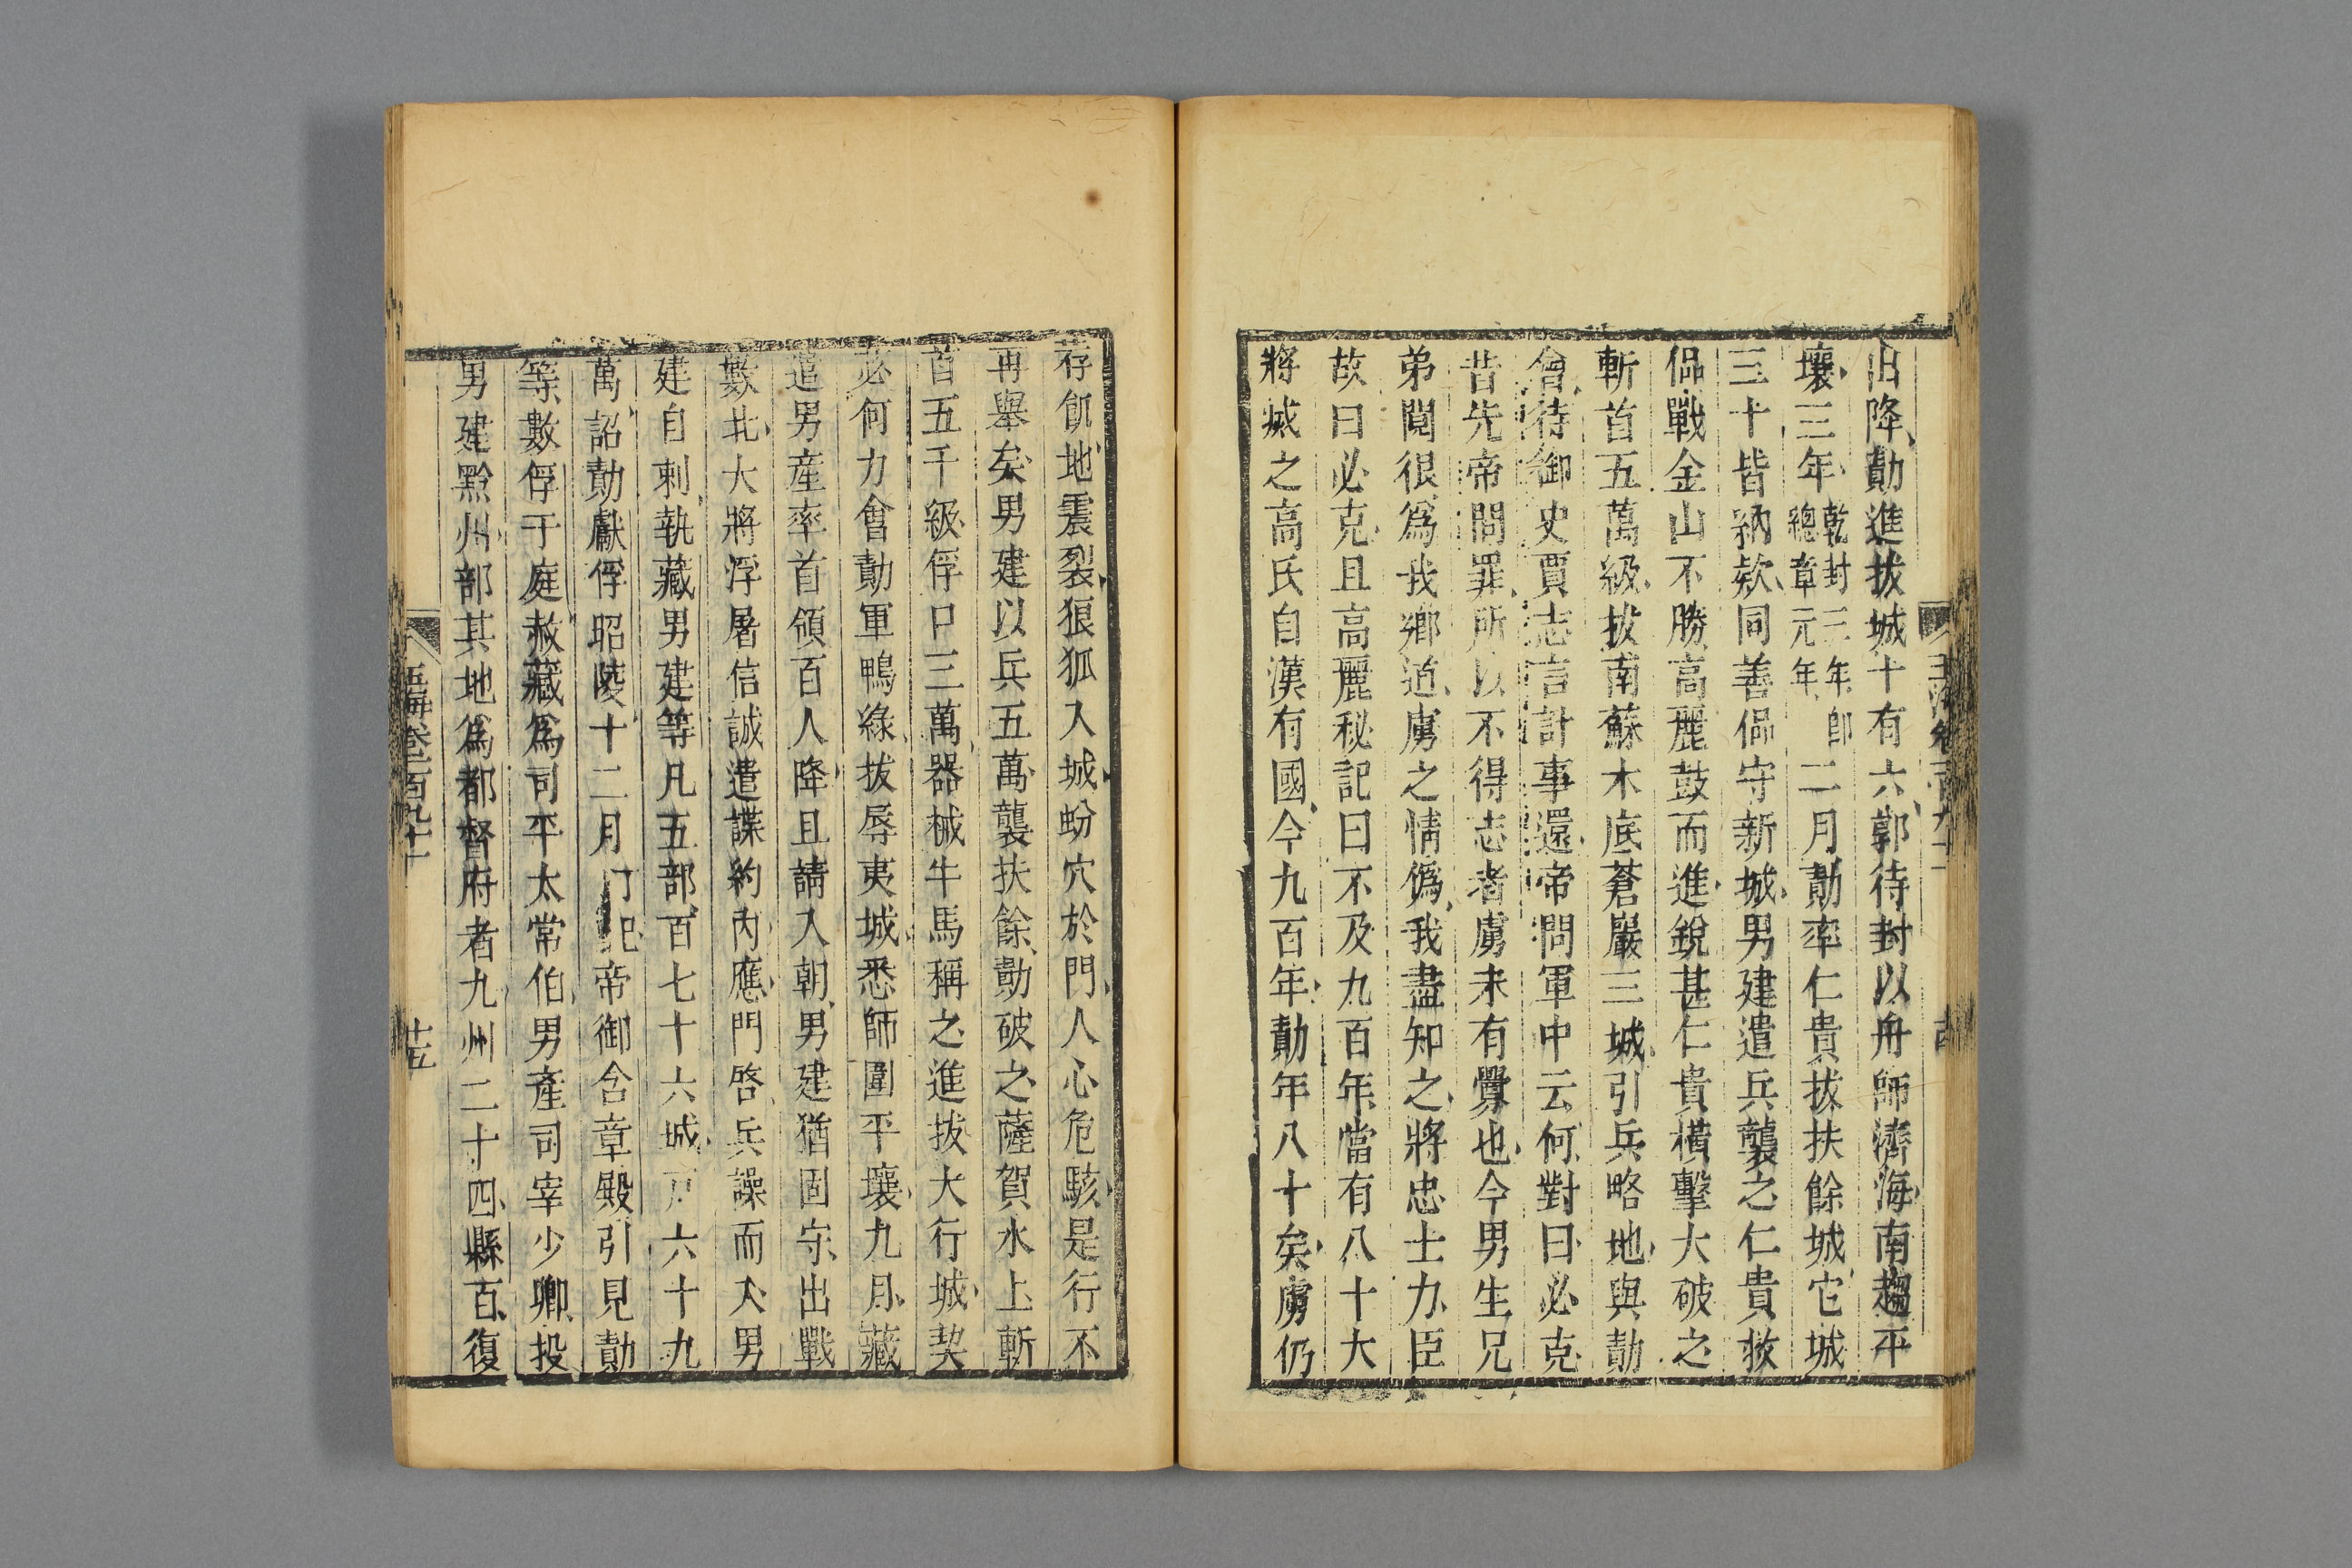 降勣進拔城十有六郭待封以舟師濟海南趨平
壤三年乾封三年即總章元年二月勣率仁貴拔扶餘城它城
三十皆納款同善偘守新城男建遣兵襲之仁貴救
偘戰金山不勝高麗鼓而進銳甚仁貴橫擊大破之
斬首五萬級拔南蘇木底蒼巖三城引兵略地與勣
會待御史賈志言計事還帝問軍中云何對曰必克
昔先帝問罪所以不得志者虜未有釁也今男生兄
弟鬩很為我鄉道虜之情僞我盡知之將忠士力臣
故曰必克且高麗秘記曰不及九百年當有八十大
將滅之高氏自漢有國今九百年勣年八十矣虜仍
荐飢地震裂狼狐入城蚡穴於門人心危駭是行不
再舉矣男建以兵五萬襲扶餘勣破之薩賀水上斬
首五千級俘口三萬器械牛馬稱之進拔大行城契
苾何力會勣軍鴨綠拔辱夷城悉師圍平壤九月藏
遣男產率首領百人降且請入朝男建猶固守出戰
數北大將浮屠信誠遣諜約內應門啓兵譟而入男
建自刺執藏男建等凡五部百七十六城戸六十九
萬詔勣獻俘昭陵十二月帝御含章殿引見勣
等數俘于庭赦藏為司平太常伯男產司宰少卿投
男建黔州部其地為都督府者九州二十四縣百復
玉海卷百九十一
十五